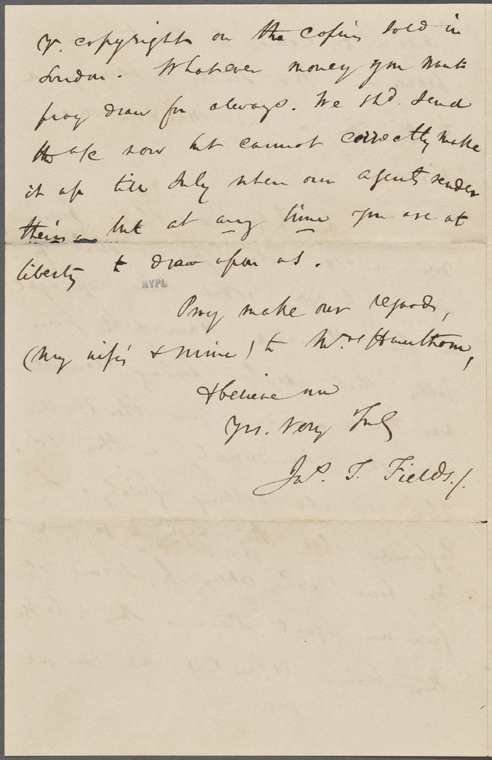 yr. copyrights on the copies sold in
London. Whatever money you want
pray draw for always. We shd. send
the a/c now but cannot correctly make
it up till July when our agents render
theirs but at any time you are at
liberty to draw upon us.
NYPL
Pray make our regards,
(my wife's & mine) to Mrs. Hawthorne,
& believe me
Yrs. Very Truly
Jas. T. Fields./.